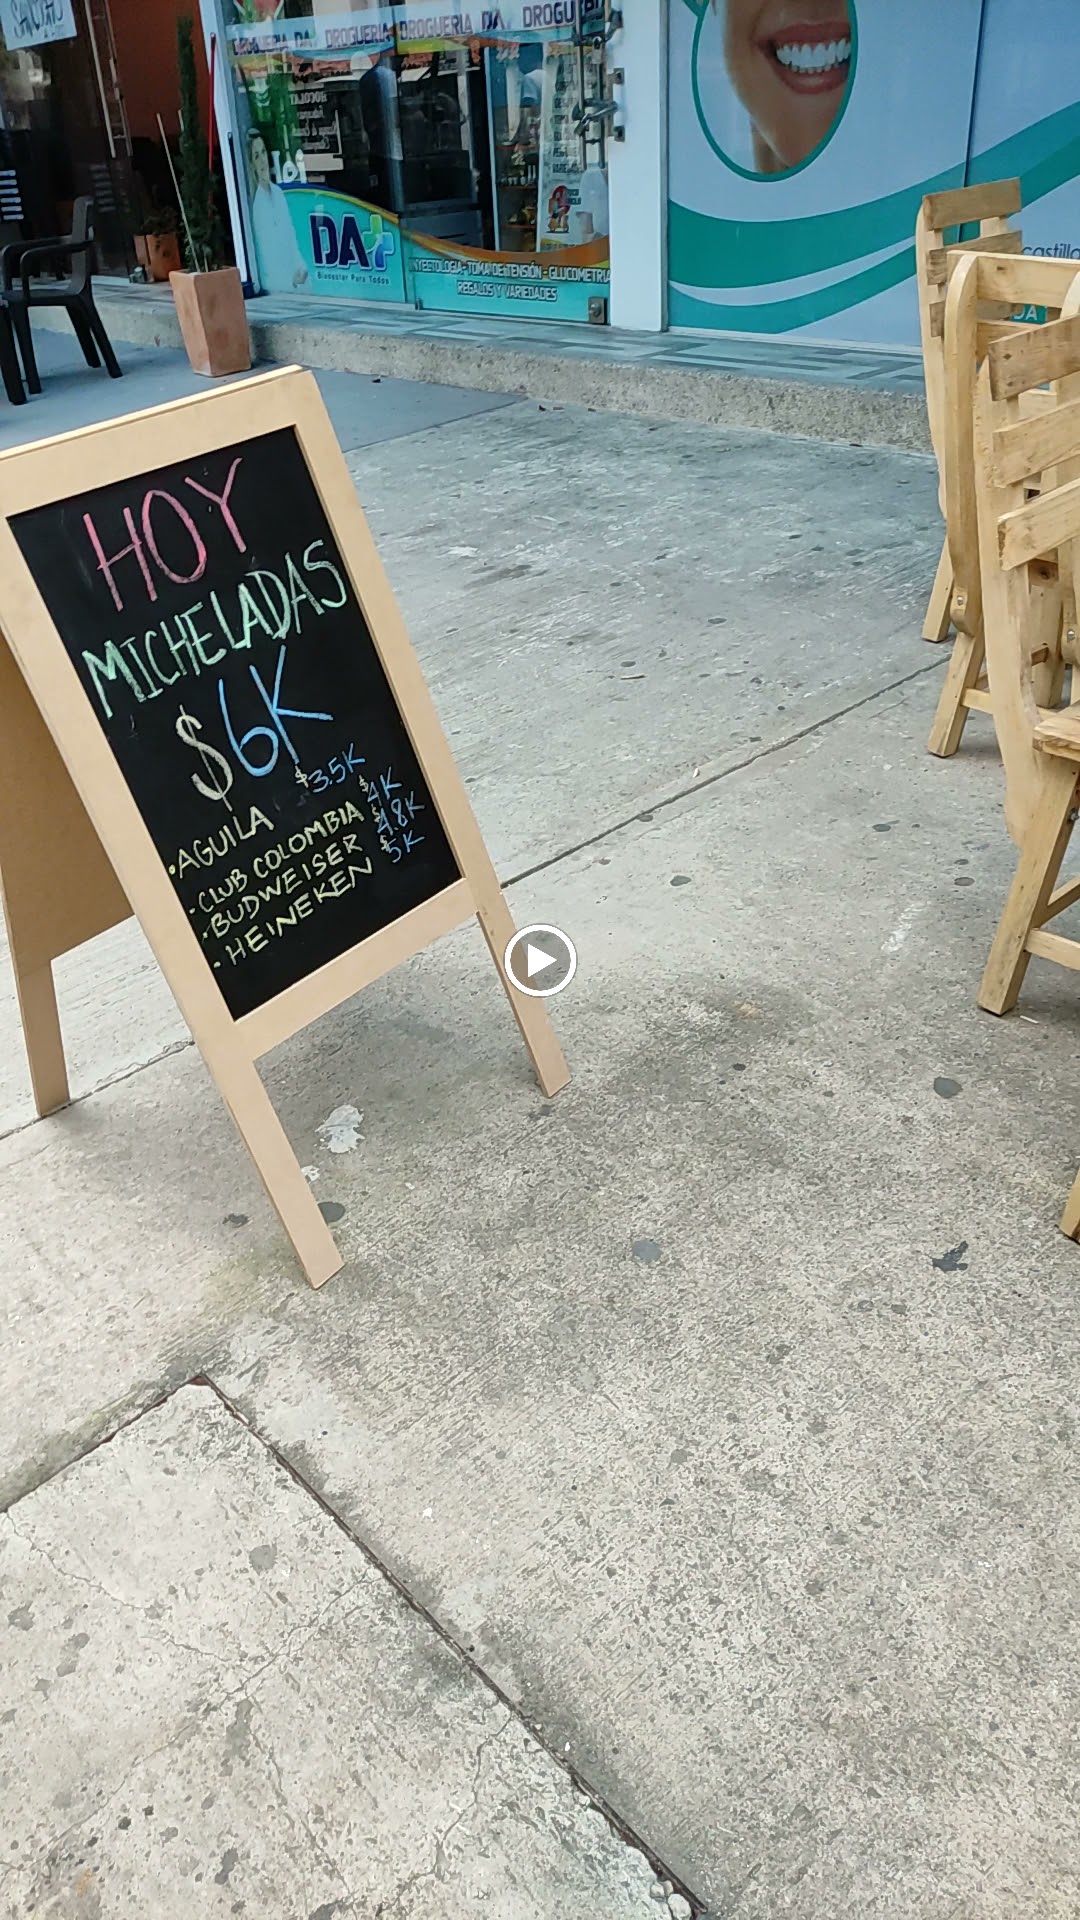 DROGUERIA DA DROGUERIA DROGUERIA DA DROGU
DA+
Bienestar Para Todos
INYECTOLOGIA - TOMA DE TENSIÓN - GLUCOMETRIA
REGALOS Y VARIEDADES
castillo
DA
HOY
MICHELADAS
$6K
• AGUILA $3.5K
• CLUB COLOMBIA $4K
• BUDWEISER $4.8K
• HEINEKEN $5K